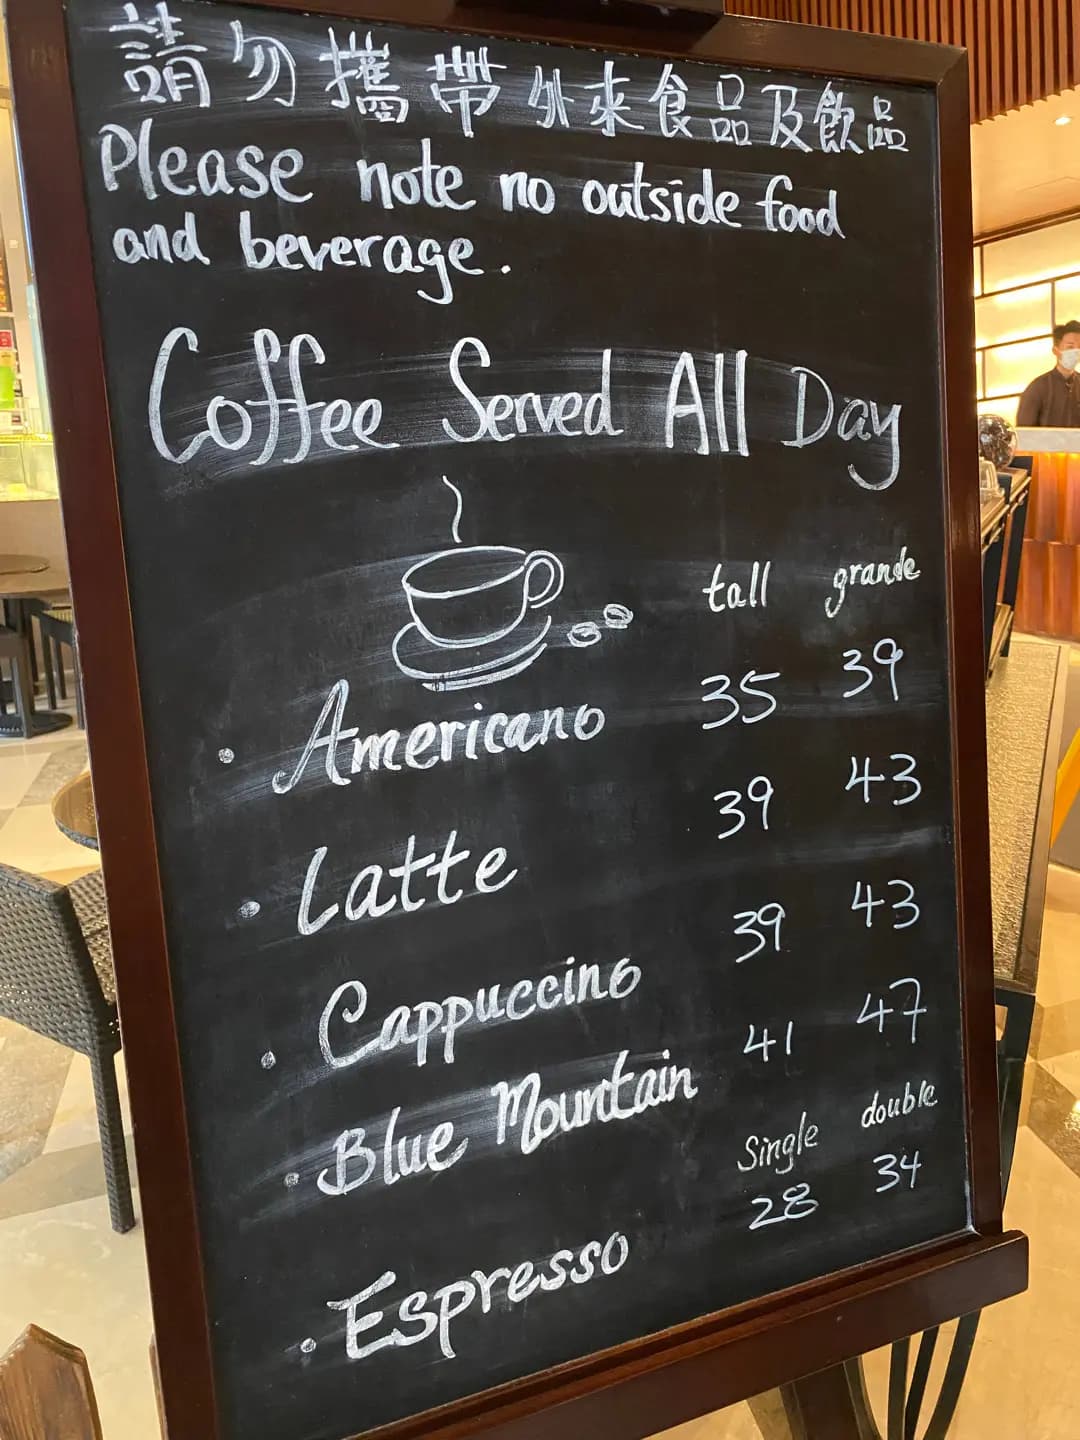 請勿攜帶外來食品及飲品
Please note no outside food
and beverage.
Coffee Served All Day
tall grande
• Americano 35 39
• Latte 39 43
• Cappuccino 39 43
• Blue Mountain 41 47
Single double
• Espresso 28 34